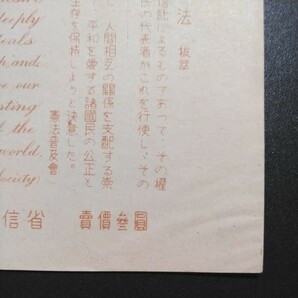 法 抜萃
信託によるものであつて、その權
民の代表者がこれを行使し、その
、人間相互の關係を支配する崇
、平和を愛する諸國民の公正と
生存を保持しようと決意した。
憲法普及會
deeply
deals
and
our
sting
the
world,
ociety)
信省
賣價參圓